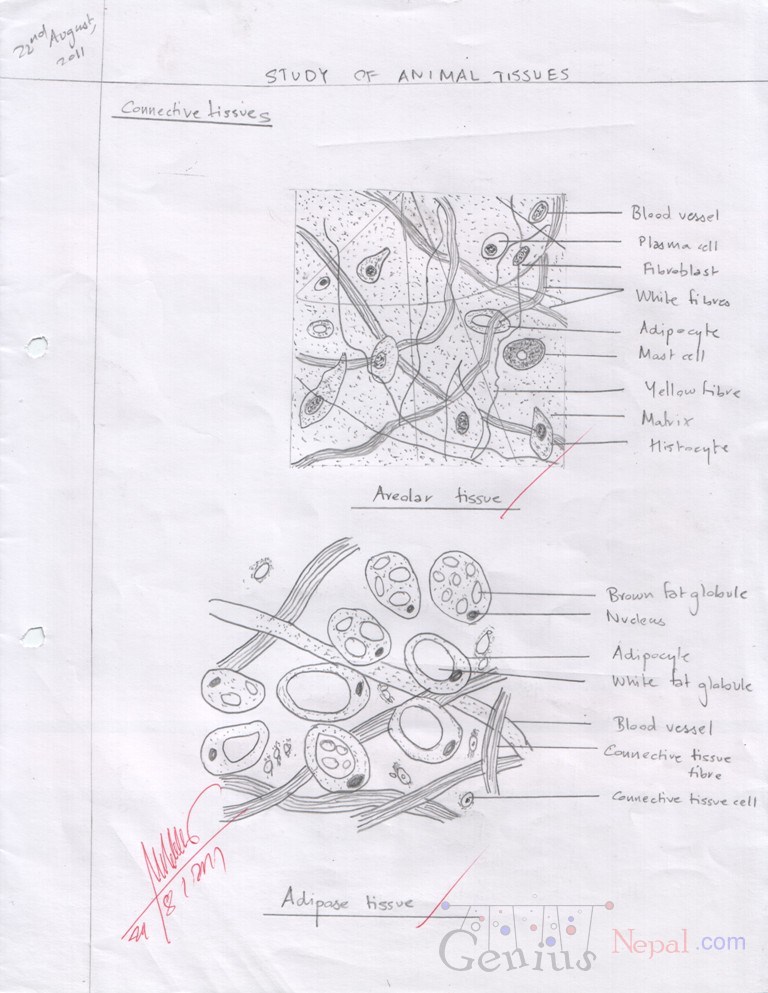 22nd August,
2011
STUDY OF ANIMAL TISSUES
Connective tissues
Blood vessel
Plasma cell
Fibroblast
White fibres
Adipocyte
Mast cell
Yellow fibre
Matrix
Histocyte
Areolar tissue
Brown fat globule
Nucleus
Adipocyte
White fat globule
Blood vessel
Connective tissue
fibre
Connective tissue cell
Adipose tissue
Genius Nepal.com